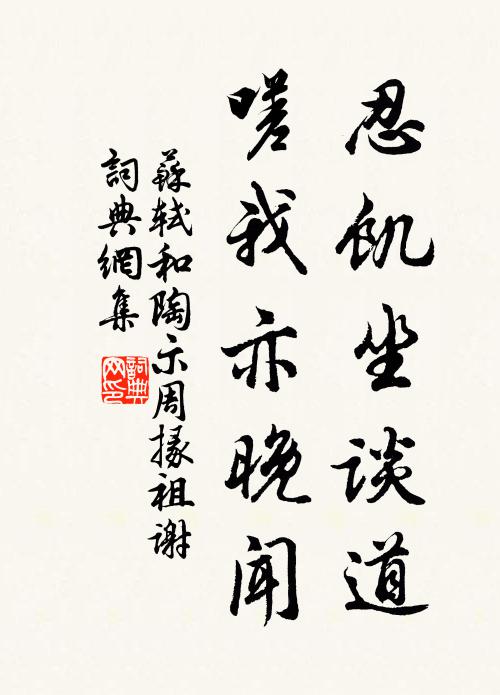 忍飢坐談道
嗟我亦晚聞
蘇軾和陶示周掾祖謝
詞典網集
詞典
网印